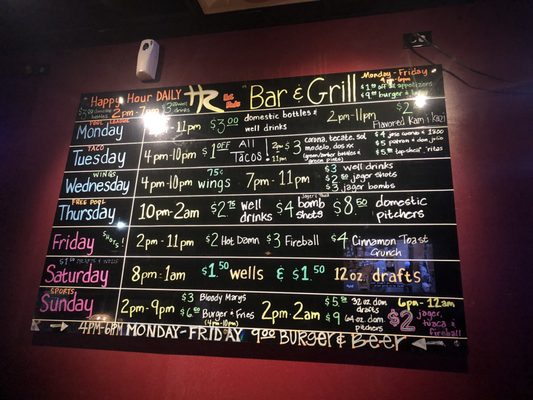 Happy Hour DAILY HR Bar & Grill
2pm - 7pm
Monday - Friday
4pm-6pm
$1.00 off appetizers
$9.00 burger &
POOL LEAGUE
Monday - 11pm $3.00 domestic bottles & well drinks 2pm-11pm $2 Flavored Kamikazi
Taco
Tuesday 4pm-10pm $1 OFF All Tacos! 2pm-11pm $3 corona, tecate, sol modelo, dos xx
WINGS
Wednesday 4pm-10pm 75¢ wings 7pm-11pm $3 well drinks
$2 jager shots
$3 jager bombs
FREE POOL
Thursday 10pm-2am $2.75 well drinks $4 bomb shots $8.50 domestic pitchers
Friday shots 2pm-11pm $2 Hot Damn $3 Fireball $4 Cinnamon Toast Crunch
Saturday 8pm-1am $1.50 wells & $1.50 12oz drafts
SPORTS
Sunday 2pm-9pm $3 Bloody Marys
Burger & Fries
(4pm-10pm)
2pm-2am $5 32oz dom. drafts
$9 64oz dom. pitchers
6pm-12am
$2 jager, tuaca & fireball
4PM-6PM MONDAY-FRIDAY 9.00 BURGER & BEER